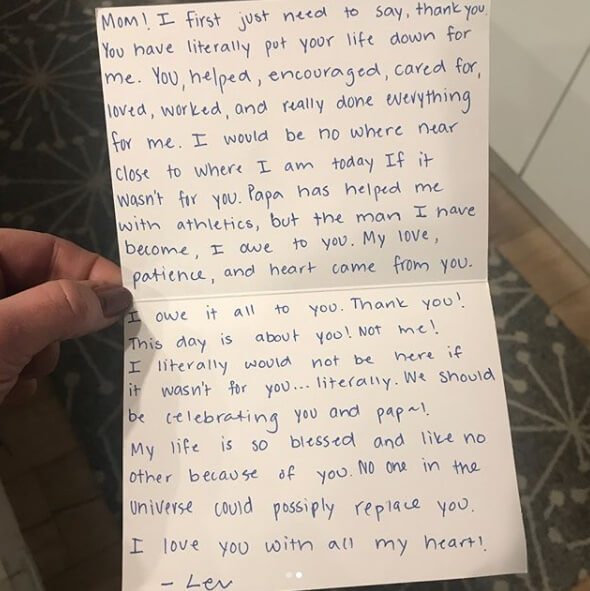 Mom! I first just need to say, thank you.
You have literally put your life down for
me. You, helped, encouraged, cared for,
loved, worked, and really done everything
for me. I would be no where near
close to where I am today If it
wasn't for you. Papa has helped me
with athletics, but the man I have
become, I owe to you. My love,
patience, and heart came from you.
I owe it all to you. Thank you!
This day is about you! Not me!
I literally would not be here if
it wasn't for you... literally. We should
be celebrating you and papa!
My life is so blessed and like no
other because of you. No one in the
Universe could possiply replace you.
I love you with all my heart!
- Lev